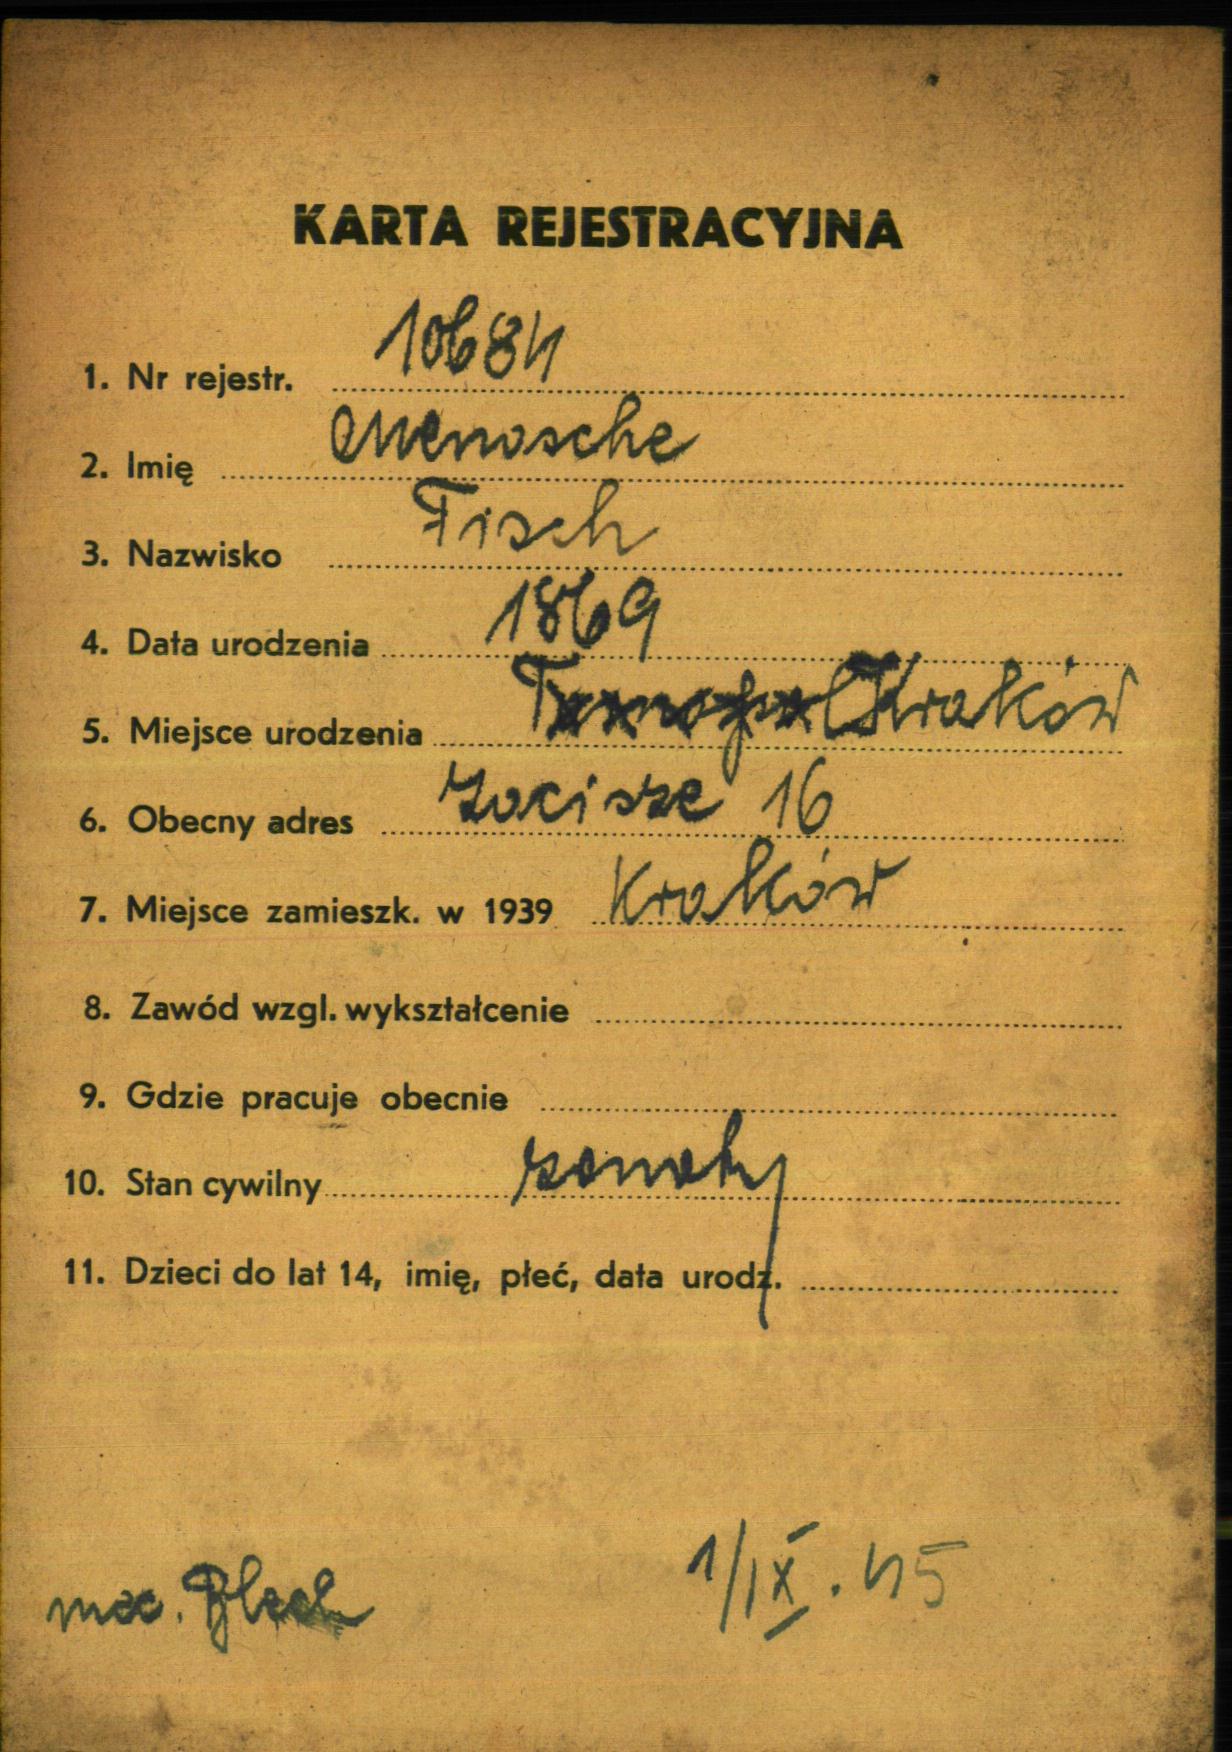 KARTA REJESTRACYJNA
1. Nr rejestr. 10684
2. Imię Menasche
3. Nazwisko Fisch
4. Data urodzenia 1869
5. Miejsce urodzenia Kraków
6. Obecny adres Zacisze 16
7. Miejsce zamieszk. w 1939 Kraków
8. Zawód wzgl. wykształcenie
9. Gdzie pracuje obecnie
10. Stan cywilny żonaty
11. Dzieci do lat 14, imię, płeć, data urodz.
1/IX.45